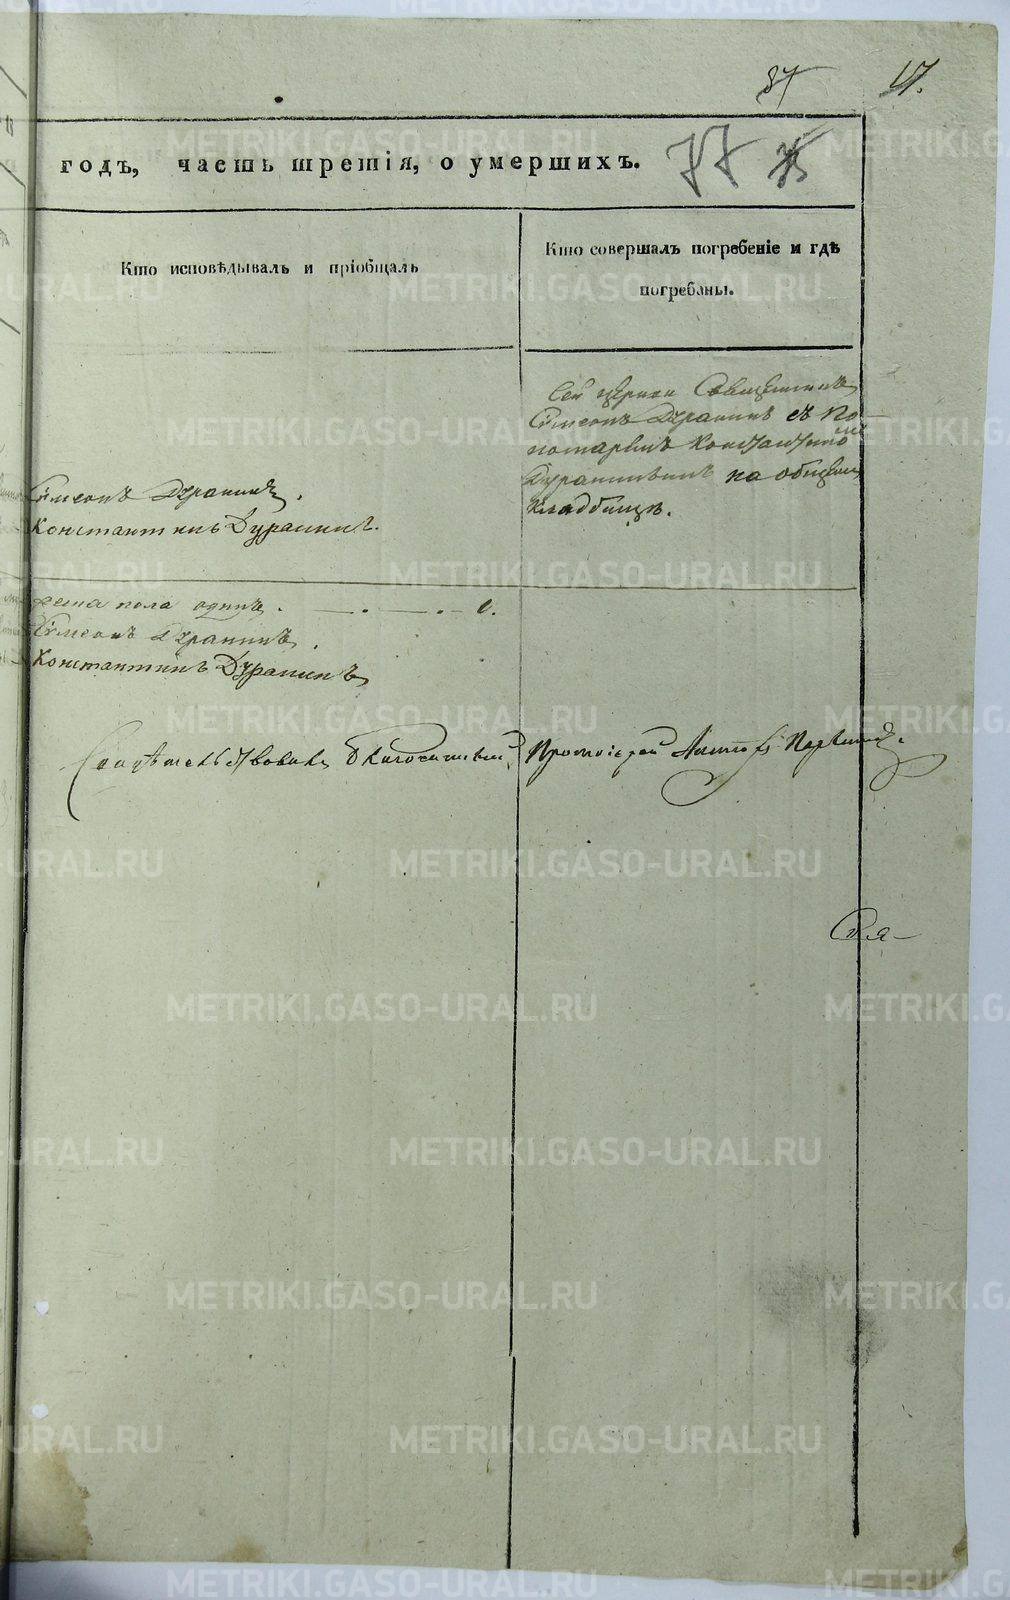 17.
77
годъ, часть третія, о умершихъ.
Кто исповѣдывалъ и пріобщалъ
Кто совершалъ погребеніе и гдѣ
погребены.
Сей церкви Священникъ
Симеонъ Дуранинъ съ По-
номаремъ Константино
Дуранинымъ на общемъ
кладбищѣ.
Симеонъ Дуранинъ.
Константинъ Дуранинъ.
пола одинъ. — . — . — 1.
Симеонъ Дуранинъ.
Константинъ Дуранинъ
Свидѣтельствовалъ Благочинный, Протоіерей
METRIKI.GASO-URAL.RU